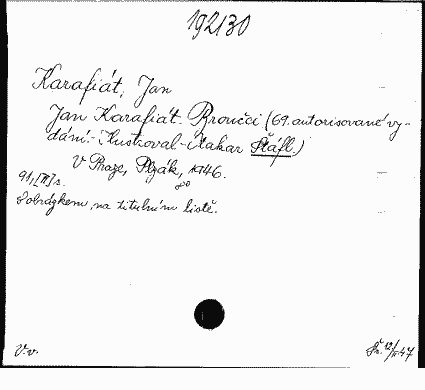 192130
Karafiát, Jan
Jan Karafiát. Broučci (69. autorisované vy-
dání.- Ilustroval Otakar Štáfl.)
V Praze, Plzák, 1946.
8°
91, [II] s.
S obrázkem na titulním listě.
V.v.
47